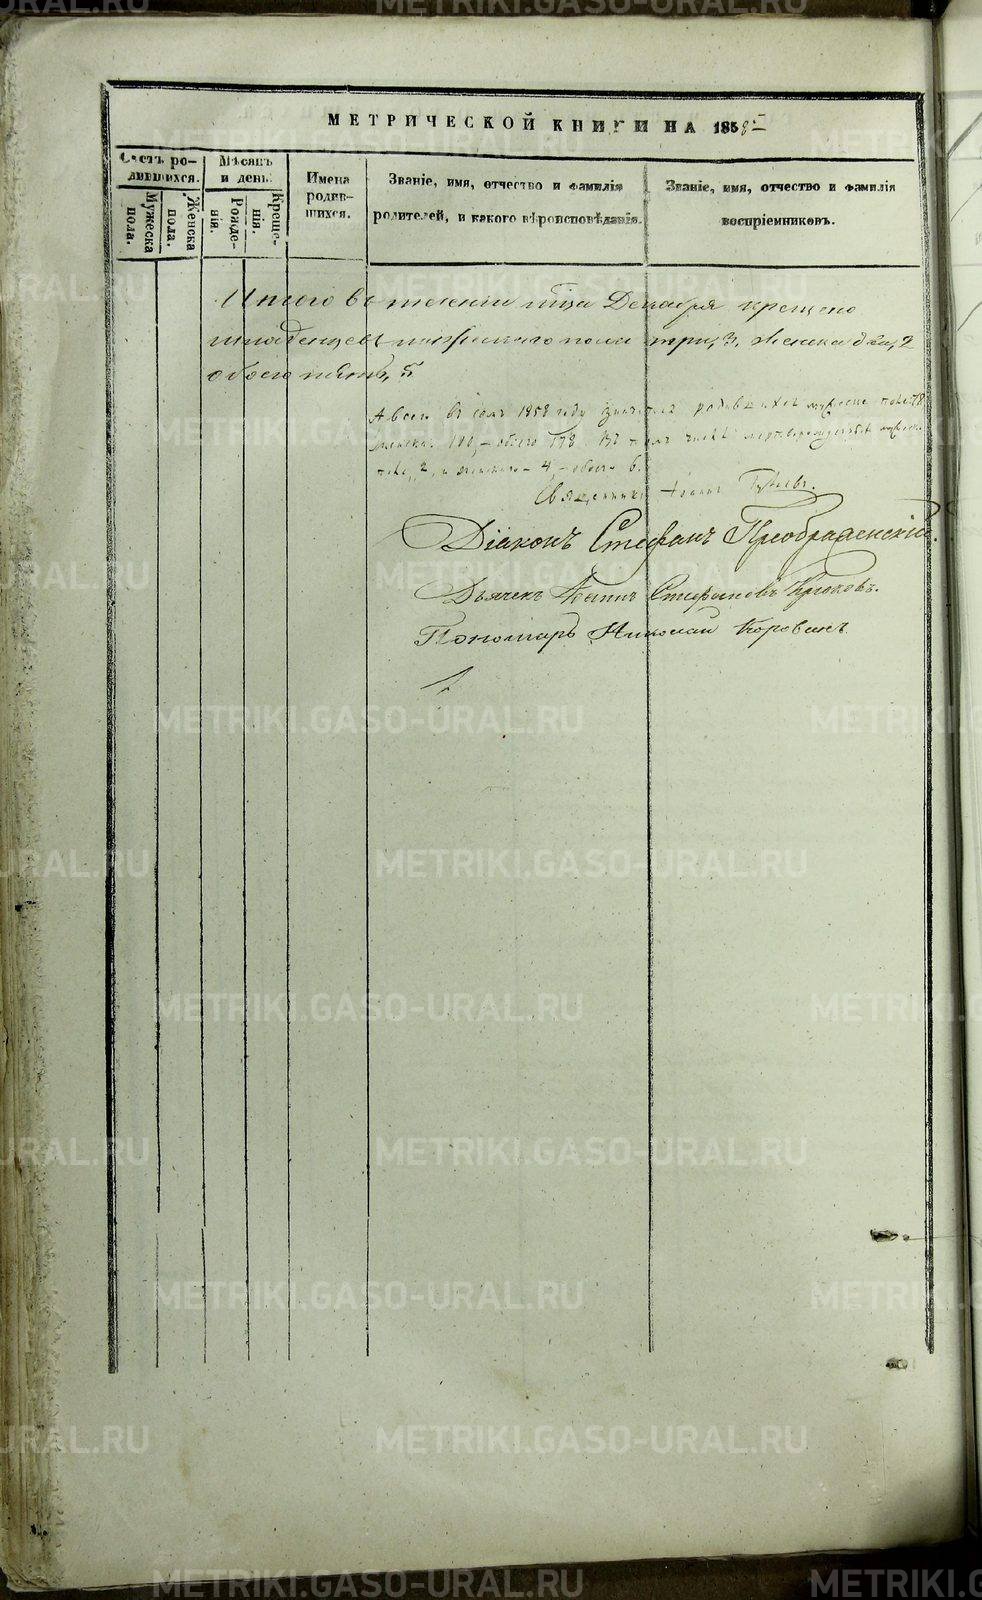 МЕТРИЧЕСКОЙ КНИГИ НА 1858
Счетъ родившихся.
Мужеска пола.
Женска пола.
Мѣсяцъ и день.
Рожденія.
Крещенія.
Имена родившихся.
Званіе, имя, отчество и фамилія
родителей, и какого вѣроисповѣданія.
Званіе, имя, отчество и фамилія
воспріемниковъ.
Итого въ теченіи мца Декабря крещено
младенцевъ мужескаго пола три, 3, женска два, 2
обоего пять, 5
А всего въ семъ 1858 году родившихся мужеска пола 78
женска 100, – обоего 178. Въ томъ числѣ мертворожденныхъ мужеска
пола, 2, и женскаго – 4, – обоего 6.
Священникъ Іоаннъ
Діаконъ Стефанъ Преображенскій.
Дьячекъ Стефановъ Крюковъ.
Пономарь Николай Коровинъ
METRIKI.GASO-URAL.RU